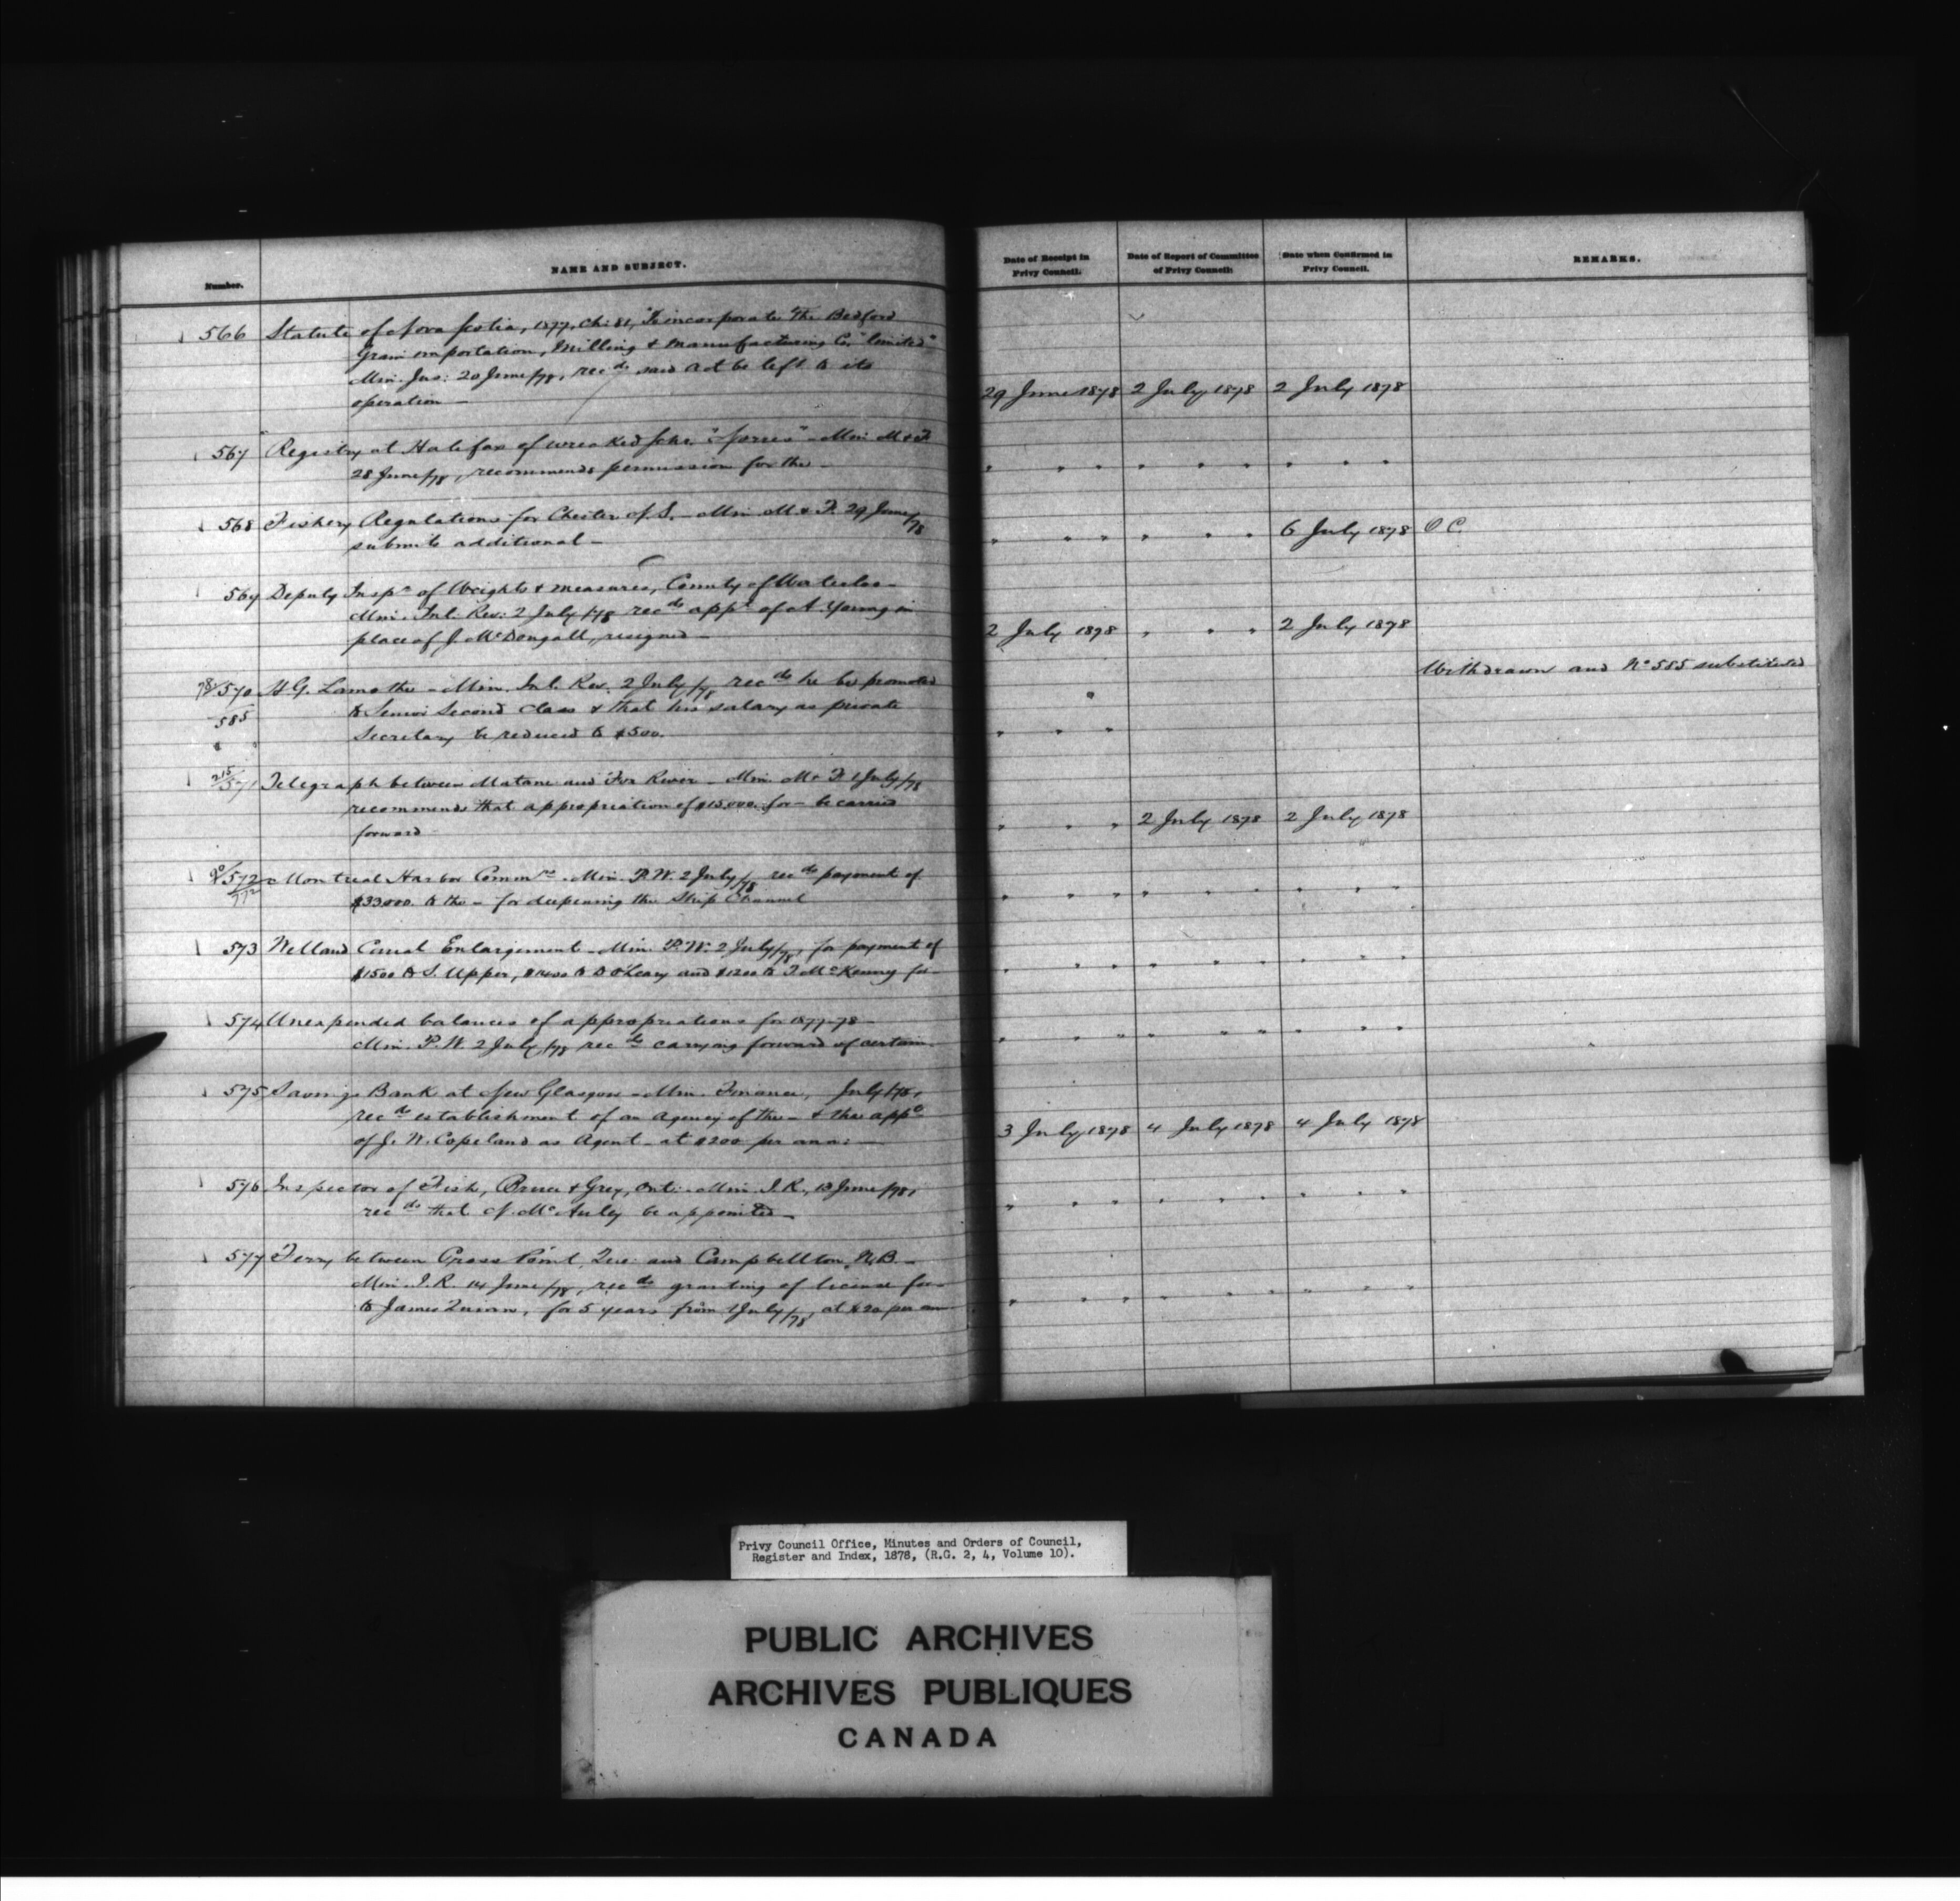 Number.
NAME AND SUBJECT.
Date of Receipt in Privy Council.
Date of Report of Committee of Privy Council:
Date when Confirmed in Privy Council.
REMARKS.
566 Statute of Nova Scotia, 1877, Ch: 81, "To incorporate The Bedford
Grain importation, Milling & Manufacturing Co. "limited"
Min. Jus: 20 June/78, recds said Act be left to its
operation — 29 June 1878 2 July 1878 2 July 1878
567 Registry at Halifax of wrecked Schr. — Min. M & F.
28 June/78, recommends permission for the — " " " " " " " " "
568 Fishery Regulations for Chester N.S. — Min. M & F. 29 June/78
submits additional — " " " " " " 6 July 1878 O C.
569 Deputy Inspr of Weights & Measures, County of Waterloo —
Min. Inl. Rev: 2 July/78 recds appt of A. Young in
place of J. McDougall, resigned — 2 July 1878 " " " 2 July 1878
570 H. G. Lamothe — Min. Inl. Rev. 2 July/78 recds he be promoted Withdrawn and No 585 substituted
585 to Senior Second Class & that his salary as private
Secretary be reduced to $500. " " "
215/571 Telegraph between Matane and Fox River — Min. M & F. 1 July/78
recommends that appropriation of $15,000 for — be carried
forward " " " 2 July 1878 2 July 1878
572 Montreal Harbor Commrs. Min. P.W. 2 July/78 recds payment of
$33,000. to the — for deepening the Ship Channel " " " " " " " " "
573 Welland Canal Enlargement — Min. P.W. 2 July/78, for payment of
$1500 to S. Upper, to D O'Leary and $1200 to T. McKenny for — " " " " " " " " "
574 Unexpended balances of appropriations for 1877-78 —
Min. P.W. 2 July/78 recds carrying forward of certain — " " " " " " " " "
575 Savings Bank at New Glasgow — Min. Finance, July/78,
recds establishment of an Agency of the — & the appt
of J. W. Copeland as Agent — at $200 per ann: — 3 July 1878 4 July 1878 4 July 1878
576 Inspector of Fish, Bruce & Grey, Ont: — Min. I.R., 13 June/78,
recds that N. McAuley be appointed — " " " " " " " " "
577 Ferry between Cross Point, Que: and Campbellton, N.B. —
Min. I.R. 14 June/78, recds granting of license for —
to James Quinn, for 5 years from 1 July/78, at $20 per ann " " " " " " " " "
Privy Council Office, Minutes and Orders of Council,
Register and Index, 1878, (R.G. 2, 4, Volume 10).
PUBLIC ARCHIVES
ARCHIVES PUBLIQUES
CANADA